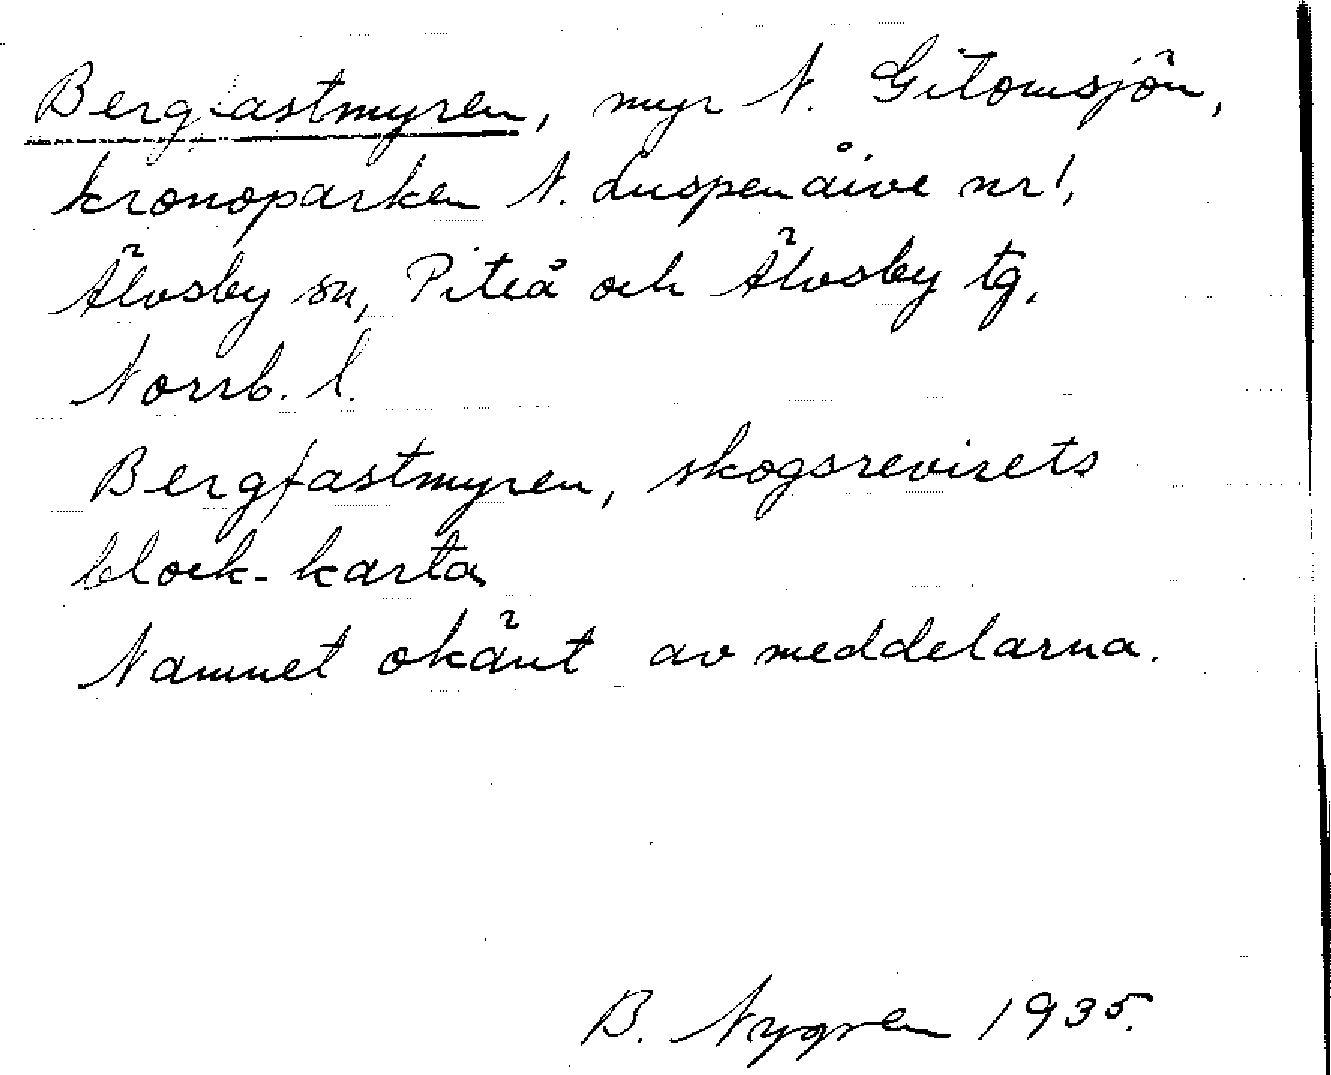 Bergfastmyren, myr N. Gitomsjön,
kronoparken N. Luspenåive nr 1,
Älvsby sn, Piteå och Älvsby tg,
Norrb. l.
Bergfastmyren, skogsrevirets
block-karta
Namnet okänt av meddelarna.
B. Nygren 1935.